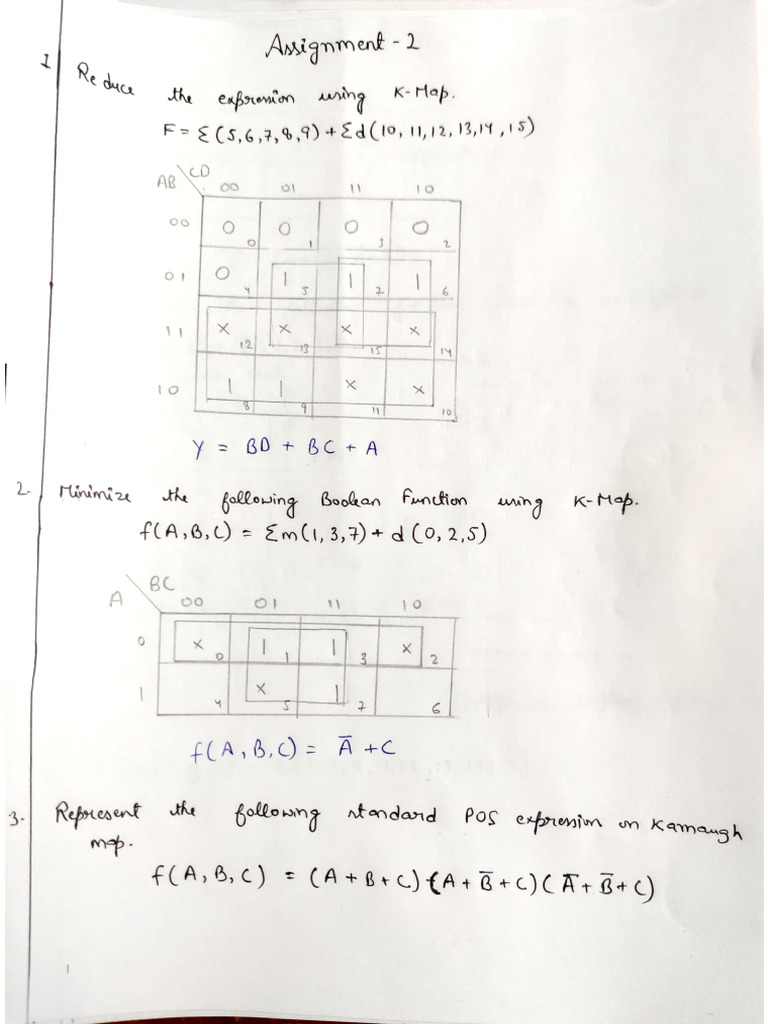 Assignment - 2
1 Reduce the expression using K-Map.
F = Σ(5,6,7,8,9) + Σd(10, 11, 12, 13, 14, 15)
AB CD 00 01 11 10
00 0 0 0 1 0 3 0 2
01 0 4 1 5 1 7 1 6
11 x 12 x 13 x 15 x 14
10 1 8 1 9 x 11 x 10
Y = BD + BC + A
2. Minimize the following Boolean Function using K-Map.
f(A, B, C) = Σm(1, 3, 7) + d(0, 2, 5)
A BC 00 01 11 10
0 x 0 1 1 1 3 x 2
1 4 x 5 1 7 6
f(A, B, C) = A̅ + C
3. Represent the following standard POS expression on Karnaugh
map.
f(A, B, C) = (A + B + C) (A + B̅ + C) (A̅ + B̅ + C)